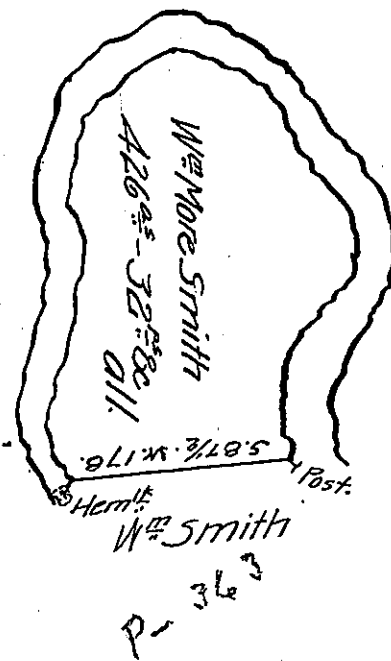 Wm More Smith
426as - 32ps &c
all.
S. 87½. W. 178.
Post.
Hem:
Wm Smith
P- 363